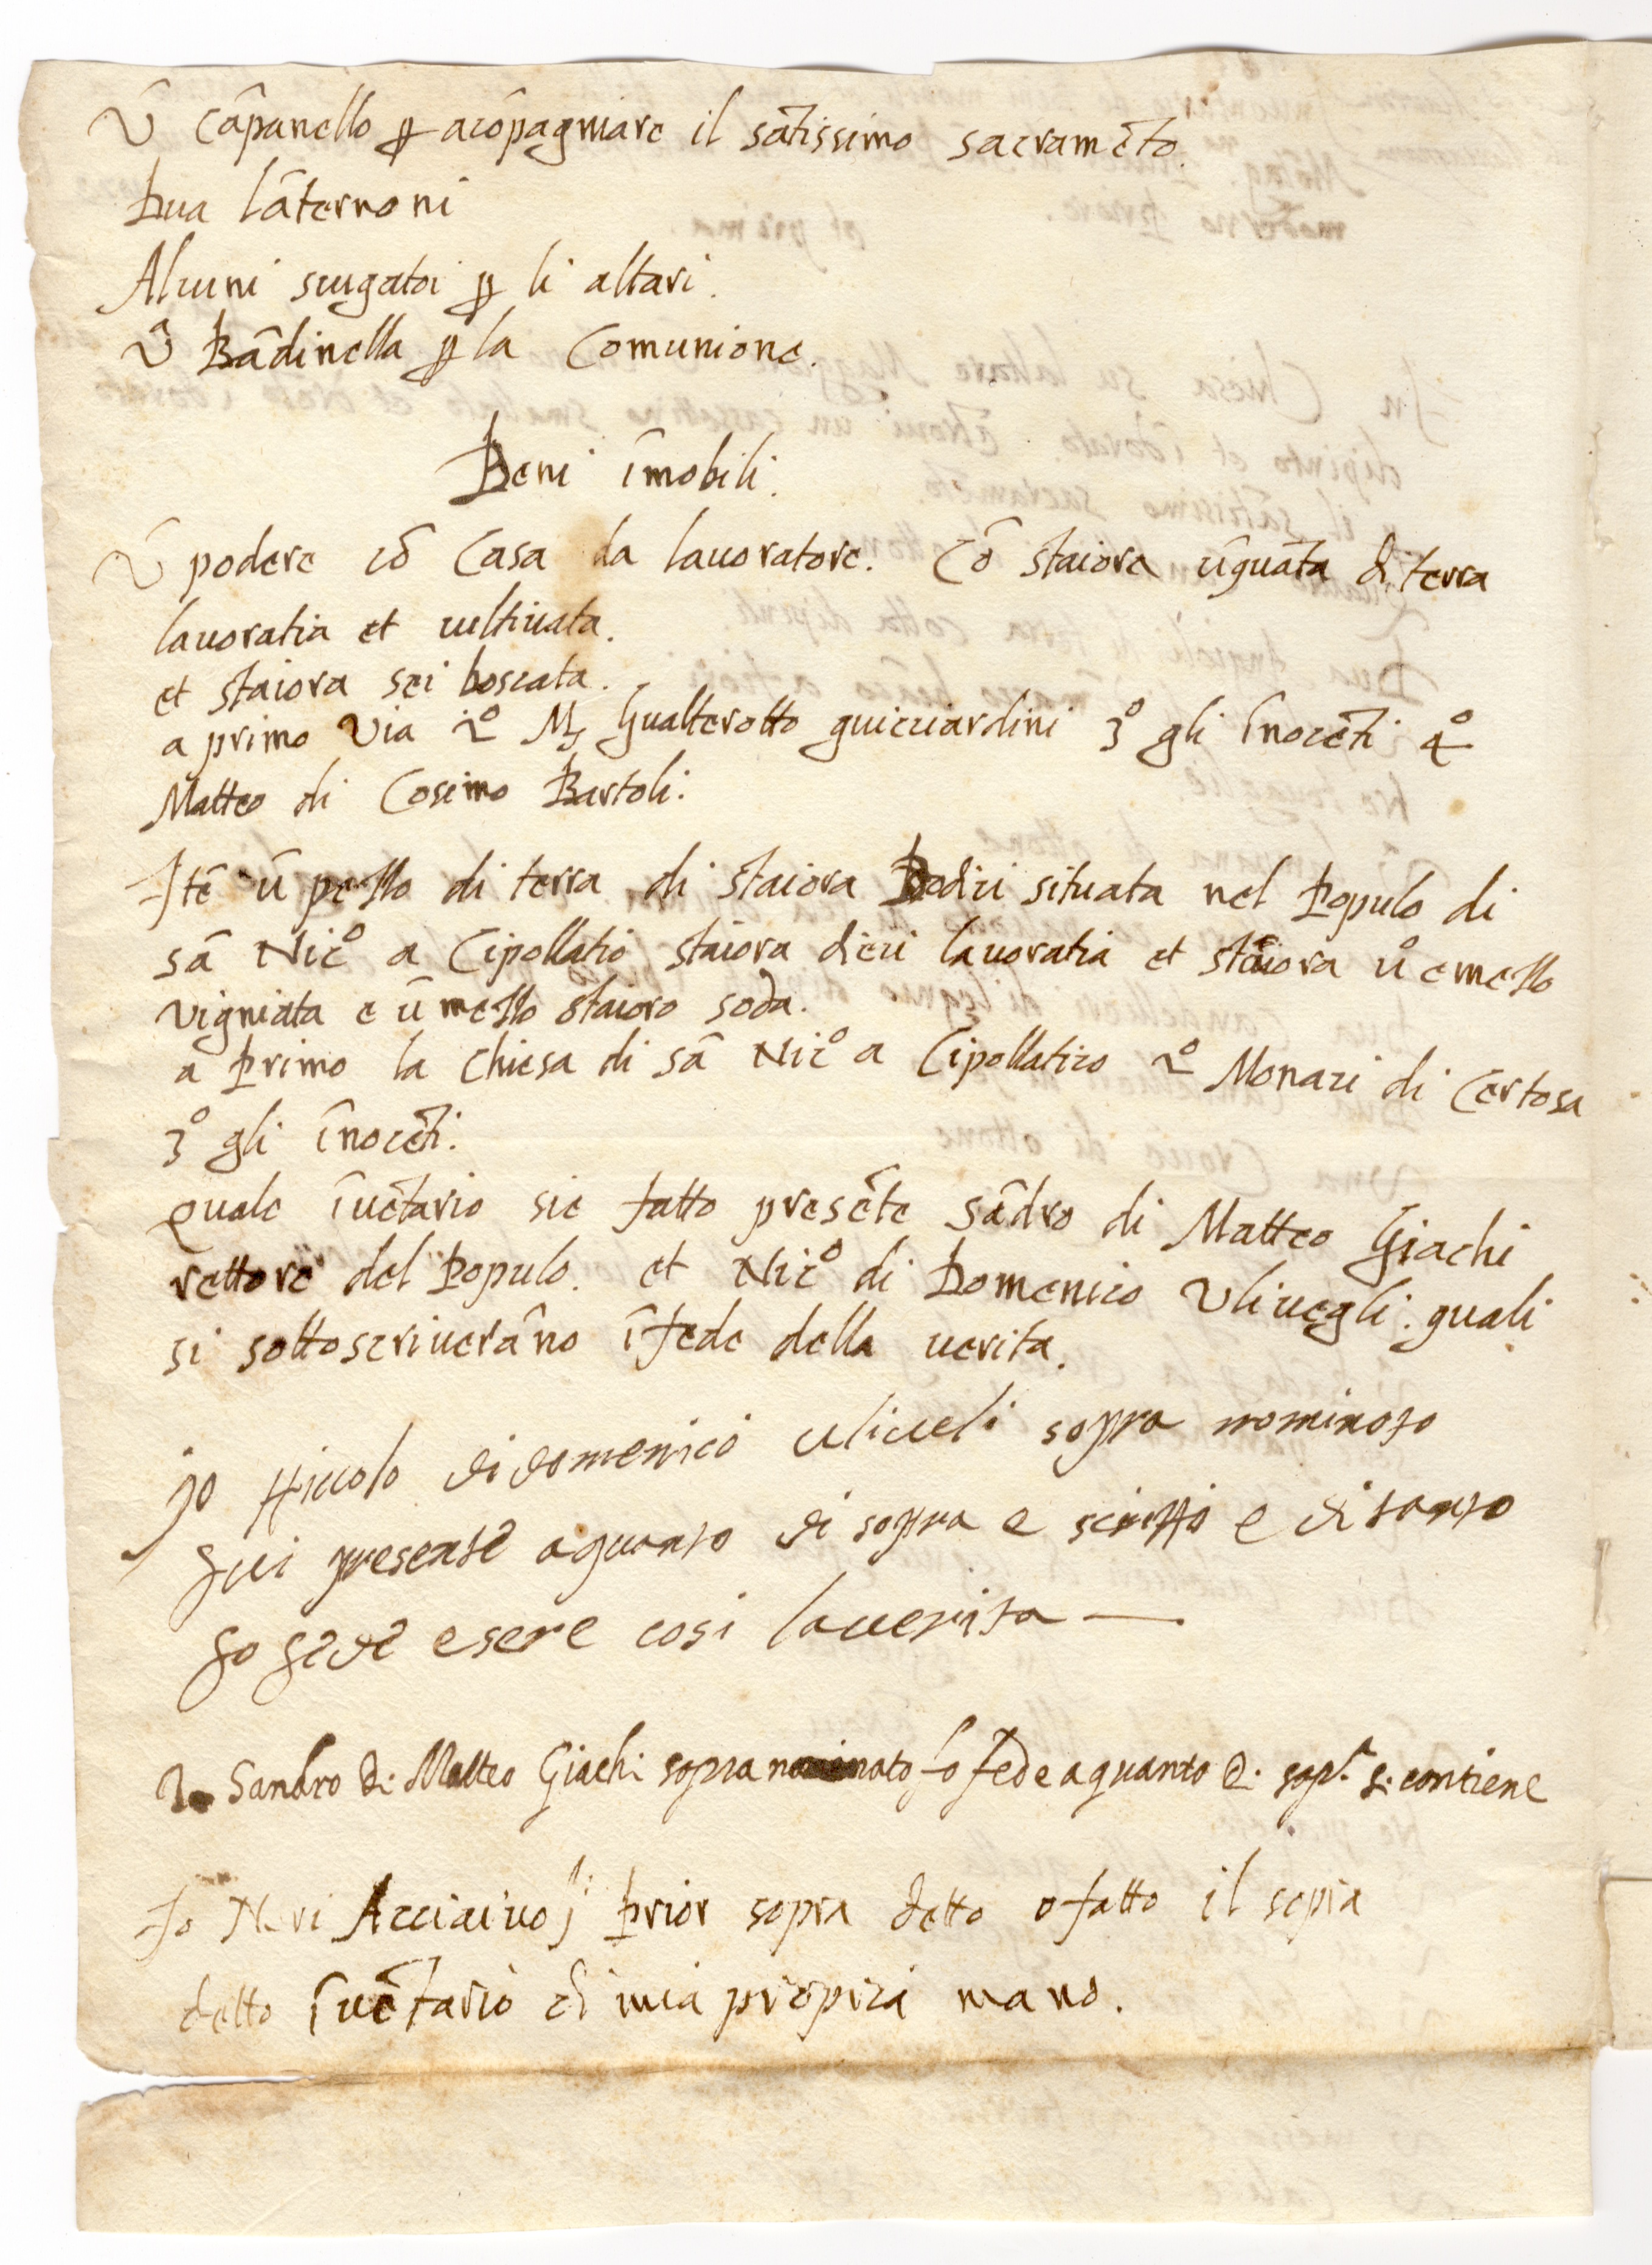 Ū cāpanello ꝑ acōpagniare il sātissimo sacramēto.
Dua lāternoni
Alcuni sciugatoi ꝑ li altari.
Vᵃ Bādinella ꝑ la Comunione.
Beni īmobili.
Ū podere cō Casa da lauoratore. Cō staiora ūquāta di terra
lauoratia et cultiuata.
et staiora sei boscata.
a primo Via 2º Mʳ Gualterotto guicciardini 3º gli īnocēti 4º
Matteo di Cosimo Bartoli.
Itē ū pezzo di terra di staiora Dodici situata nel Populo di
sā Nicº a Cipollatio staiora dieci lauoratia et staiora uº e mezzo
vigniata e ū mezzo staioro soda.
a Primo la Chiesa di sā Nicº a Cipollatico 2º Monaci di Certosa
3º gli īnocēti.
Quale īuētario sie fatto presēte Sādro di Matteo Giachi
rettore del Populo. et Nicº di Domenico Vliuegli. quali
si sottoscriuerāno ī fede della uerita.
Jo Niccolo di domenico uliueli sopra nominato
fui presente a quanto di sopra e scritto e di tanto
fo fede esere cosi la uerita —
Io Sandro di Matteo Giachi sopra nominato fo fede a quanto di sopᵃ si contiene
Io Neri Acciaiuoli Prior sopra detto o fatto il sopra
detto īuētario di mia propria mano.